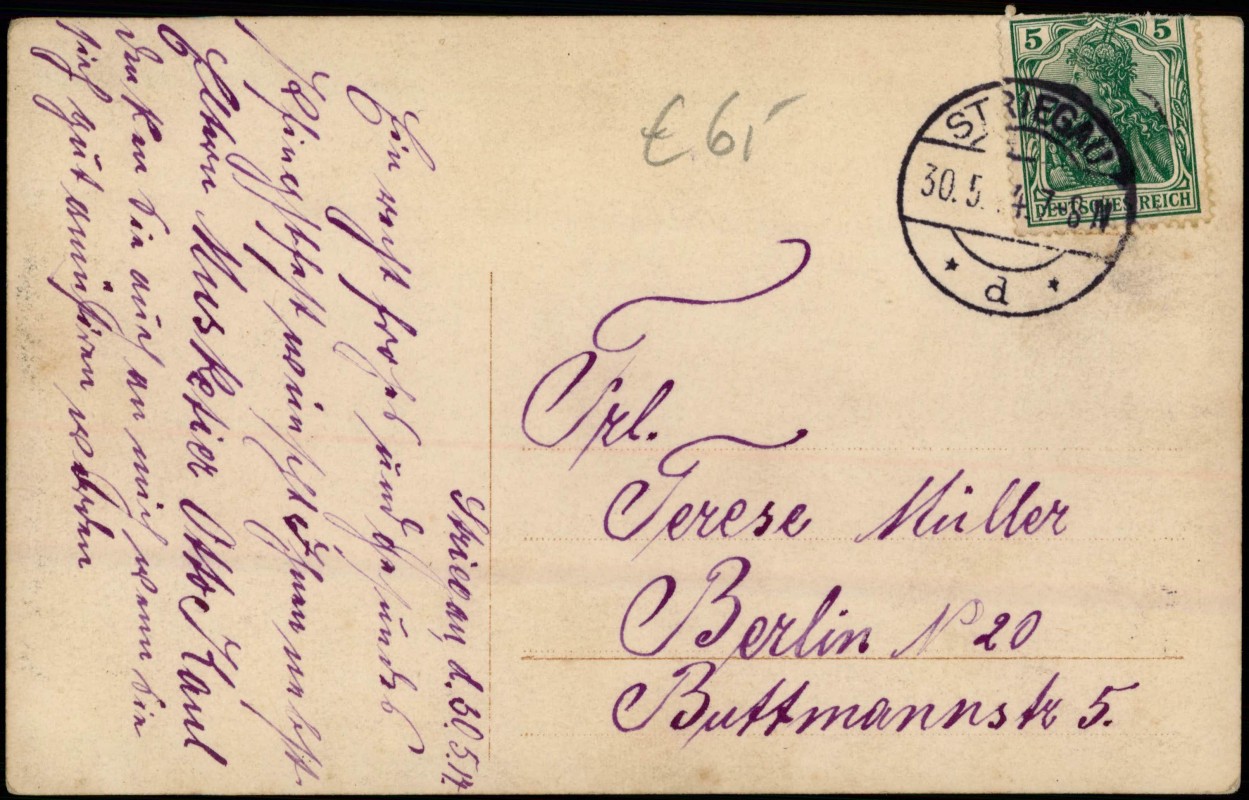 5 5
DEUTSCHES REICH
STRIEGAU
30.5. 4. 7-8 N
* d *
Striegau, d. 30.5.14.
Ein recht frohes und gesundes
Pfingstfest wünscht Ihnen nebst
Eltern Musketier Otto
denken Sie auch an mich wenn Sie
sich gut amüsiren werden
Frl.
Terese Müller
Berlin N 20
Buttmannstr 5.